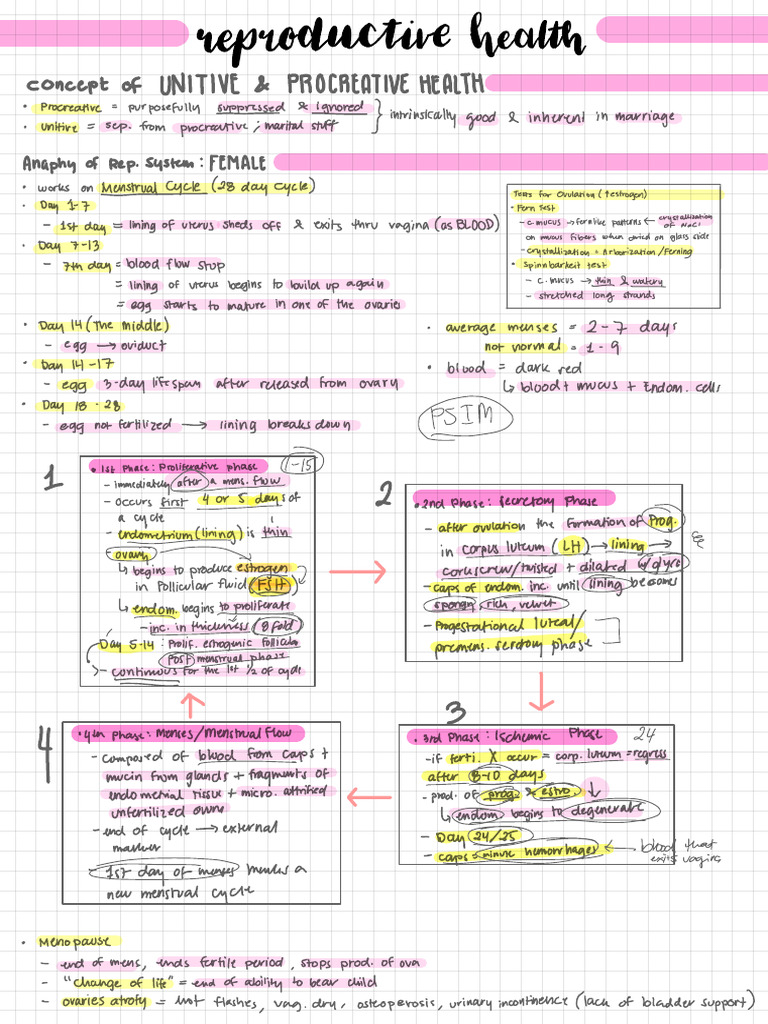 reproductive health
concept of UNITIVE & PROCREATIVE HEALTH
• Procreative = purposefully suppressed & ignored
• unitive = sep. from procreative; marital stuff
} intrinsically good & inherent in marriage
Anaphy of Rep. System: FEMALE
• works on Menstrual Cycle (28 day cycle)
• Day 1-7
- 1st day = lining of uterus sheds off & exits thru vagina (as BLOOD)
• Day 7-13
- 7th day = blood flow stop
= lining of uterus begins to build up again
= egg starts to mature in one of the ovaries
• Day 14 (The middle)
- egg → oviduct
• Day 14-17
- egg 3-day lifespan after released from ovary
• Day 18-28
- egg not fertilized → lining breaks down
Tests for Ovulation (↑estrogen)
• Fern Test
- c. mucus → fernlike patterns ← crystallization of NaCl
on mucus fibers when dried on glass slide
- crystallization = Arborization/Ferning
• Spinnbarkeit test
- c. mucus → thin & watery
- stretched long strands
• average menses = 2-7 days
not normal = 1-9
• blood = dark red
↳ blood + mucus + Endom. cells
PSIM
1
• 1st Phase: Proliferative phase 1-15
- immediately after a mens. flow
- occurs first 4 or 5 days of
a cycle
- endometrium (lining) is thin
- ovary
↳ begins to produce estrogen
in Follicular fluid (FSH)
↳ endom. begins to proliferate
- inc. in thickness (8 fold)
Day 5-14: Prolif. estrogenic follicular
post menstrual phase
- continuous for the 1st 1/2 of cycle
2
• 2nd Phase: Secretory Phase
- after ovulation the formation of Prog.
in corpus luteum (LH) → lining →
corkscrew/twisted + dilated w/ glyco
- caps of endom. inc. until lining becomes
spongy, rich, velvet
- Progestational luteal/
premens. secretory phase
3
• 3rd Phase: Ischemic Phase 24
- if ferti. X occur = corp. luteum = regress
after 8-10 days
- prod. of prog. & estro. ↓
↳ endom begins to degenerate
- Day 24/25
- caps = minute hemorrhages ← blood that
exits vagina
4
• 4th phase: Menses/Menstrual Flow
- composed of blood from caps +
mucin from glands + fragments of
endometrial tissue + micro. atrified
unfertilized ovum
- end of cycle → external
marker
- 1st day of menses marks a
new menstrual cycle
• Menopause
- end of mens, ends fertile period, stops prod. of ova
- "change of life" = end of ability to bear child
- ovaries atrofy = hot flashes, vag. dry, osteoperosis, urinary incontinence (lack of bladder support)